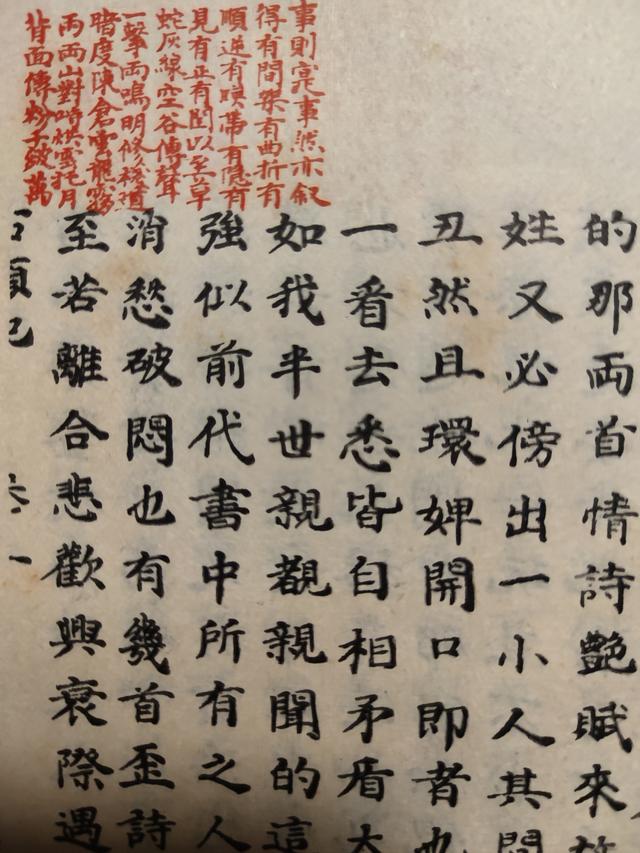 事則寔事然亦叙
得有間架有曲折有
順逆有映帶有隱有
見有正有閏以至草
蛇灰線空谷傳聲
一擊兩鳴明修棧道
暗度陳倉雲龍霧
雨兩山對峙烘雲托月
背面傳粉千皴萬
的那兩首情詩艷賦來
姓又必傍出一小人其間
丑然且環婢開口即者也
一看去悉皆自相矛盾大
如我半世親覩親聞的這
強似前代書中所有之人
消愁破悶也有幾首歪詩
至若離合悲歡興衰際遇
石頭記 卷一